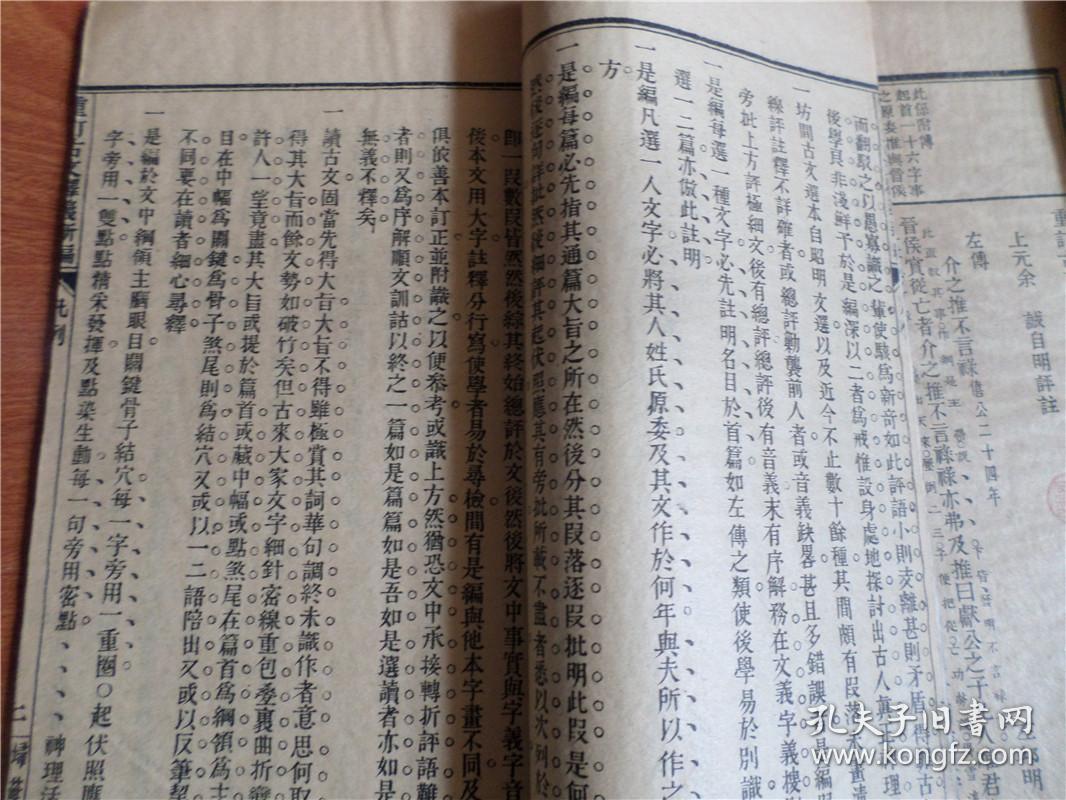 上元余　誠自明評註
左傳
介之推不言祿 僖公二十四年
晉侯賞從亡者介之推不言祿祿亦弗及推曰獻公之子
而翻駁之以愚寡識之輩使駭爲新奇如此評語小則支離甚則矛盾
後學具非淺鮮予於是編深以二者爲戒惟設身處地探討出古人
一坊間古文選本自昭明文選以及近今不止數十餘種其間頗有段落
線評註釋不詳確者或總評勦襲前人者或音義缺畧甚且多錯誤是編
旁批上方評極細文後有總評總評後有音義末有序解務在文義字義
一是編每選一種文字必先註明名目於首篇如左傳之類使後學易於別識
選一二篇亦倣此註明
一是編凡選一人文字必將其人姓氏原委及其文作於何年與夫所以作之
方
一是編每篇必先指其通篇大旨之所在然後分其段落逐段批明此段是何
然後逐句詳批然後細評其起伏照應其有旁批所載不盡者悉以次列於
即一段數段皆然然後綜其終始總評於文後然後將文中事實與字義字音
後本文用大字註釋分行寫使學者易於尋檢間有是編與他本字畫不同及
俱依善本訂正並附識之以便叅考或識上方然猶恐文中承接轉折評語難
者則又爲序解順文訓詁以終之一篇如是篇篇如是吾如是選讀者亦如是
無義不釋矣
一讀古文固當先得大旨大旨不得雖極賞其詞華句調終未識作者意思何取
得其大旨而餘文勢如破竹矣但古來大家文字細針密線重包叠裏曲折
許人一望竟盡其大旨或提於篇首或藏中幅或點煞尾在篇首爲綱領爲主
目在中幅爲關鍵爲骨子煞尾則爲結穴又或以一二語陪出又或以反筆
不同要在讀者細心尋釋
一是編於文中綱領主腦眼目關鍵骨子結穴每一字旁用一重圈起伏照應
字旁用一雙點點精采發揮及點染生動每一句旁用密點　神理活
重訂古文釋義新編
凡例
二
孔夫子旧书网
www.kongfz.com